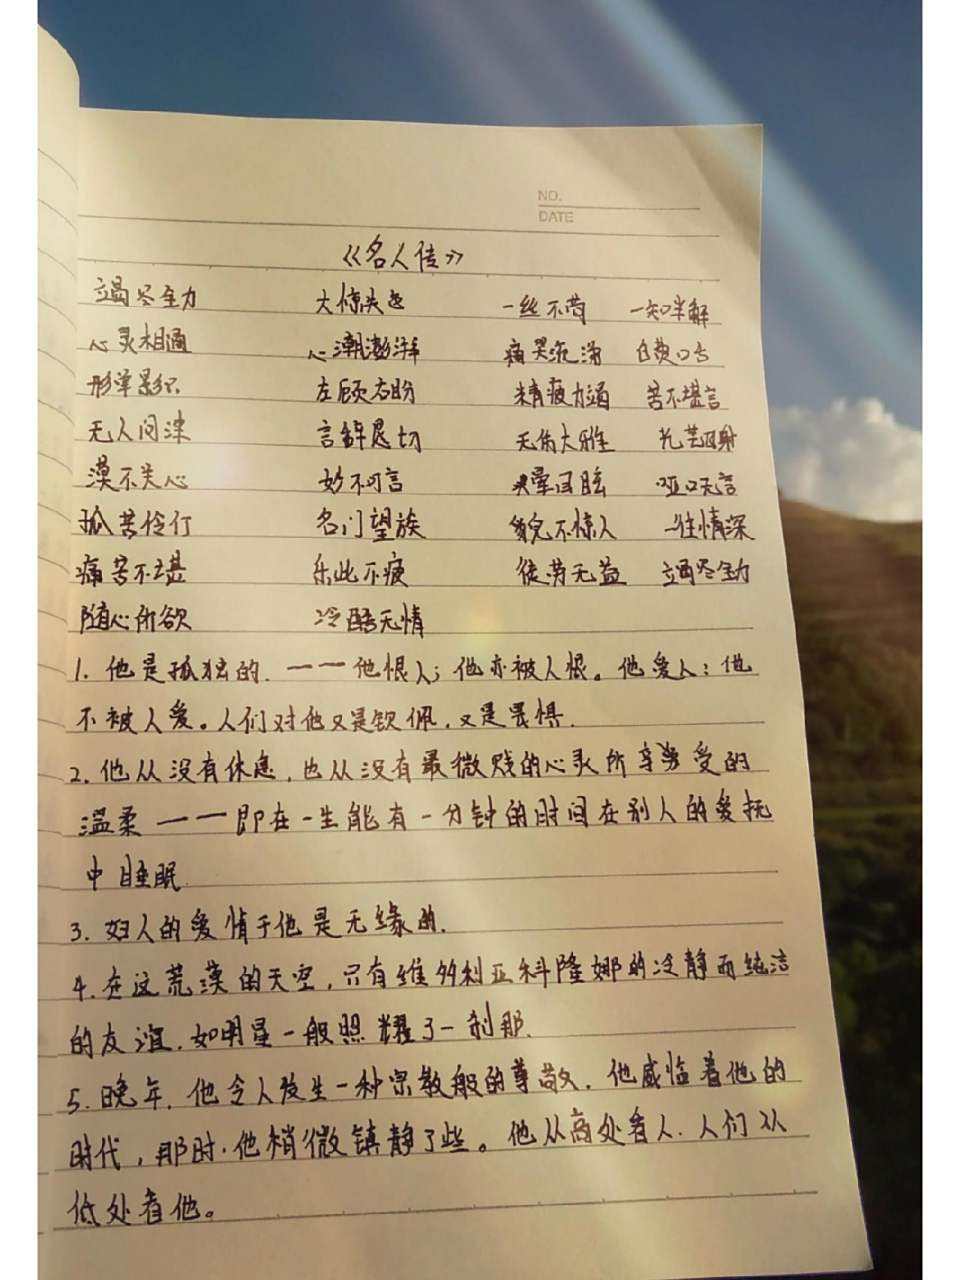 NO.
DATE
《名人传》
竭尽全力 大惊失色 一丝不苟 一知半解
心灵相通 心潮澎湃 痛哭流涕 白费口舌
形单影只 左顾右盼 精疲力竭 苦不堪言
无人问津 言辞恳切 无伤大雅 光芒四射
漠不关心 妙不可言 头晕目眩 哑口无言
孤苦伶仃 名门望族 貌不惊人 一往情深
痛苦不堪 乐此不疲 徒劳无益 竭尽全力
随心所欲 冷酷无情
1. 他是孤独的.——他恨人;他亦被人恨。他爱人;他
不被人爱。人们对他又是钦佩,又是畏惧.
2. 他从没有休息,也从没有最微贱的心灵所享受的
温柔——即在一生能有一分钟的时间在别人的爱抚
中睡眠.
3. 妇人的爱情于他是无缘的.
4. 在这荒漠的天空,只有维多利亚科隆娜的冷静而纯洁
的友谊.如明星一般照耀了一刹那.
5. 晚年.他令人发生一种宗教般的尊敬.他威临着他的
时代,那时.他稍微镇静了些。他从高处看人.人们从
低处看他。